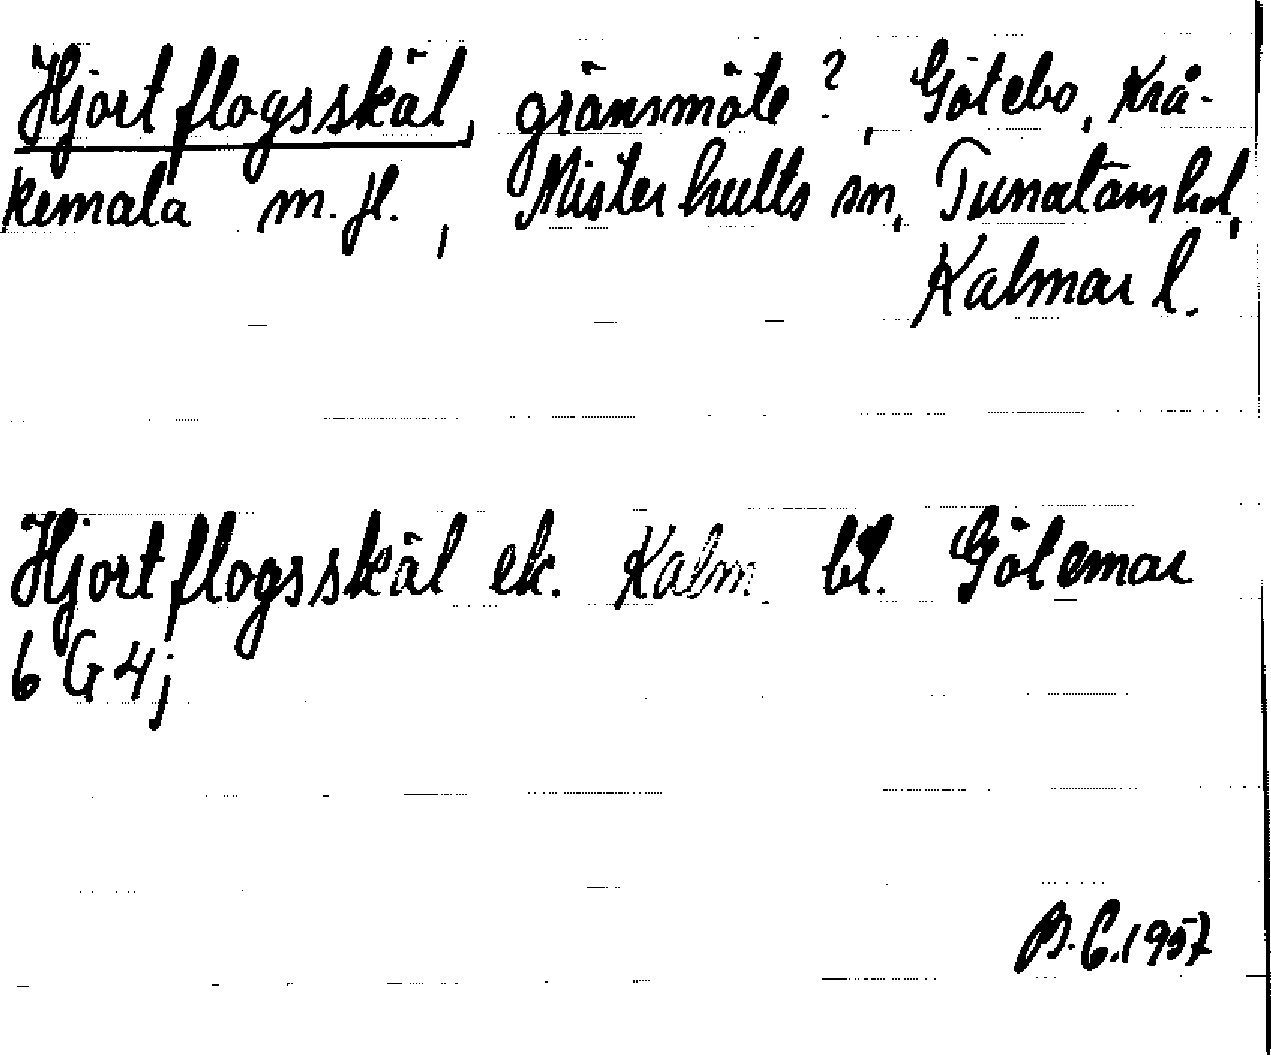 Hjortflogsskäl, gränsmöte?, Götebo, Krå-
kemåla m.fl., Misterhults sn, Tunaläns hd,
Kalmar l.
Hjortflogsskäl ek. Kalm bl. Götemar
6 G 4;
B.G. 1957